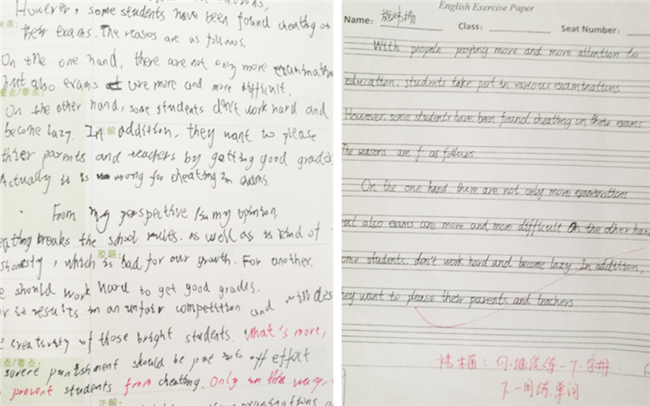 However, some students have been found cheating on
their exams. The reasons are as follows.
On the one hand, there are not only more examinations
but also exams are more and more difficult.
On the other hand, some students don't work hard and
become lazy. In addition, they want to please
their parents and teachers by getting good grades
Actually it is wrong for cheating in exams
From my perspective / In my opinion,
cheating breaks the school rules. as well as is kind of
, which is bad for our growth. For another,
we should work hard to get good grades.
it results in an unfair competition and will des
creativity of those bright students. What's more,
severe punishment should be put into off effect
prevent students from cheating. Only in this way,
English Exercise Paper
Name:
Class:
Seat Number:
With people paying more and more attention to
education, students take part in various examinations
However, some students have been found cheating on their exams
The reasons are f as follows
On the one hand there are not only more examinations
but also exams are more and more difficult On the other hand
some students don't work hard and become lazy. In addition,
they want to please their parents and teachers
下一周练单词